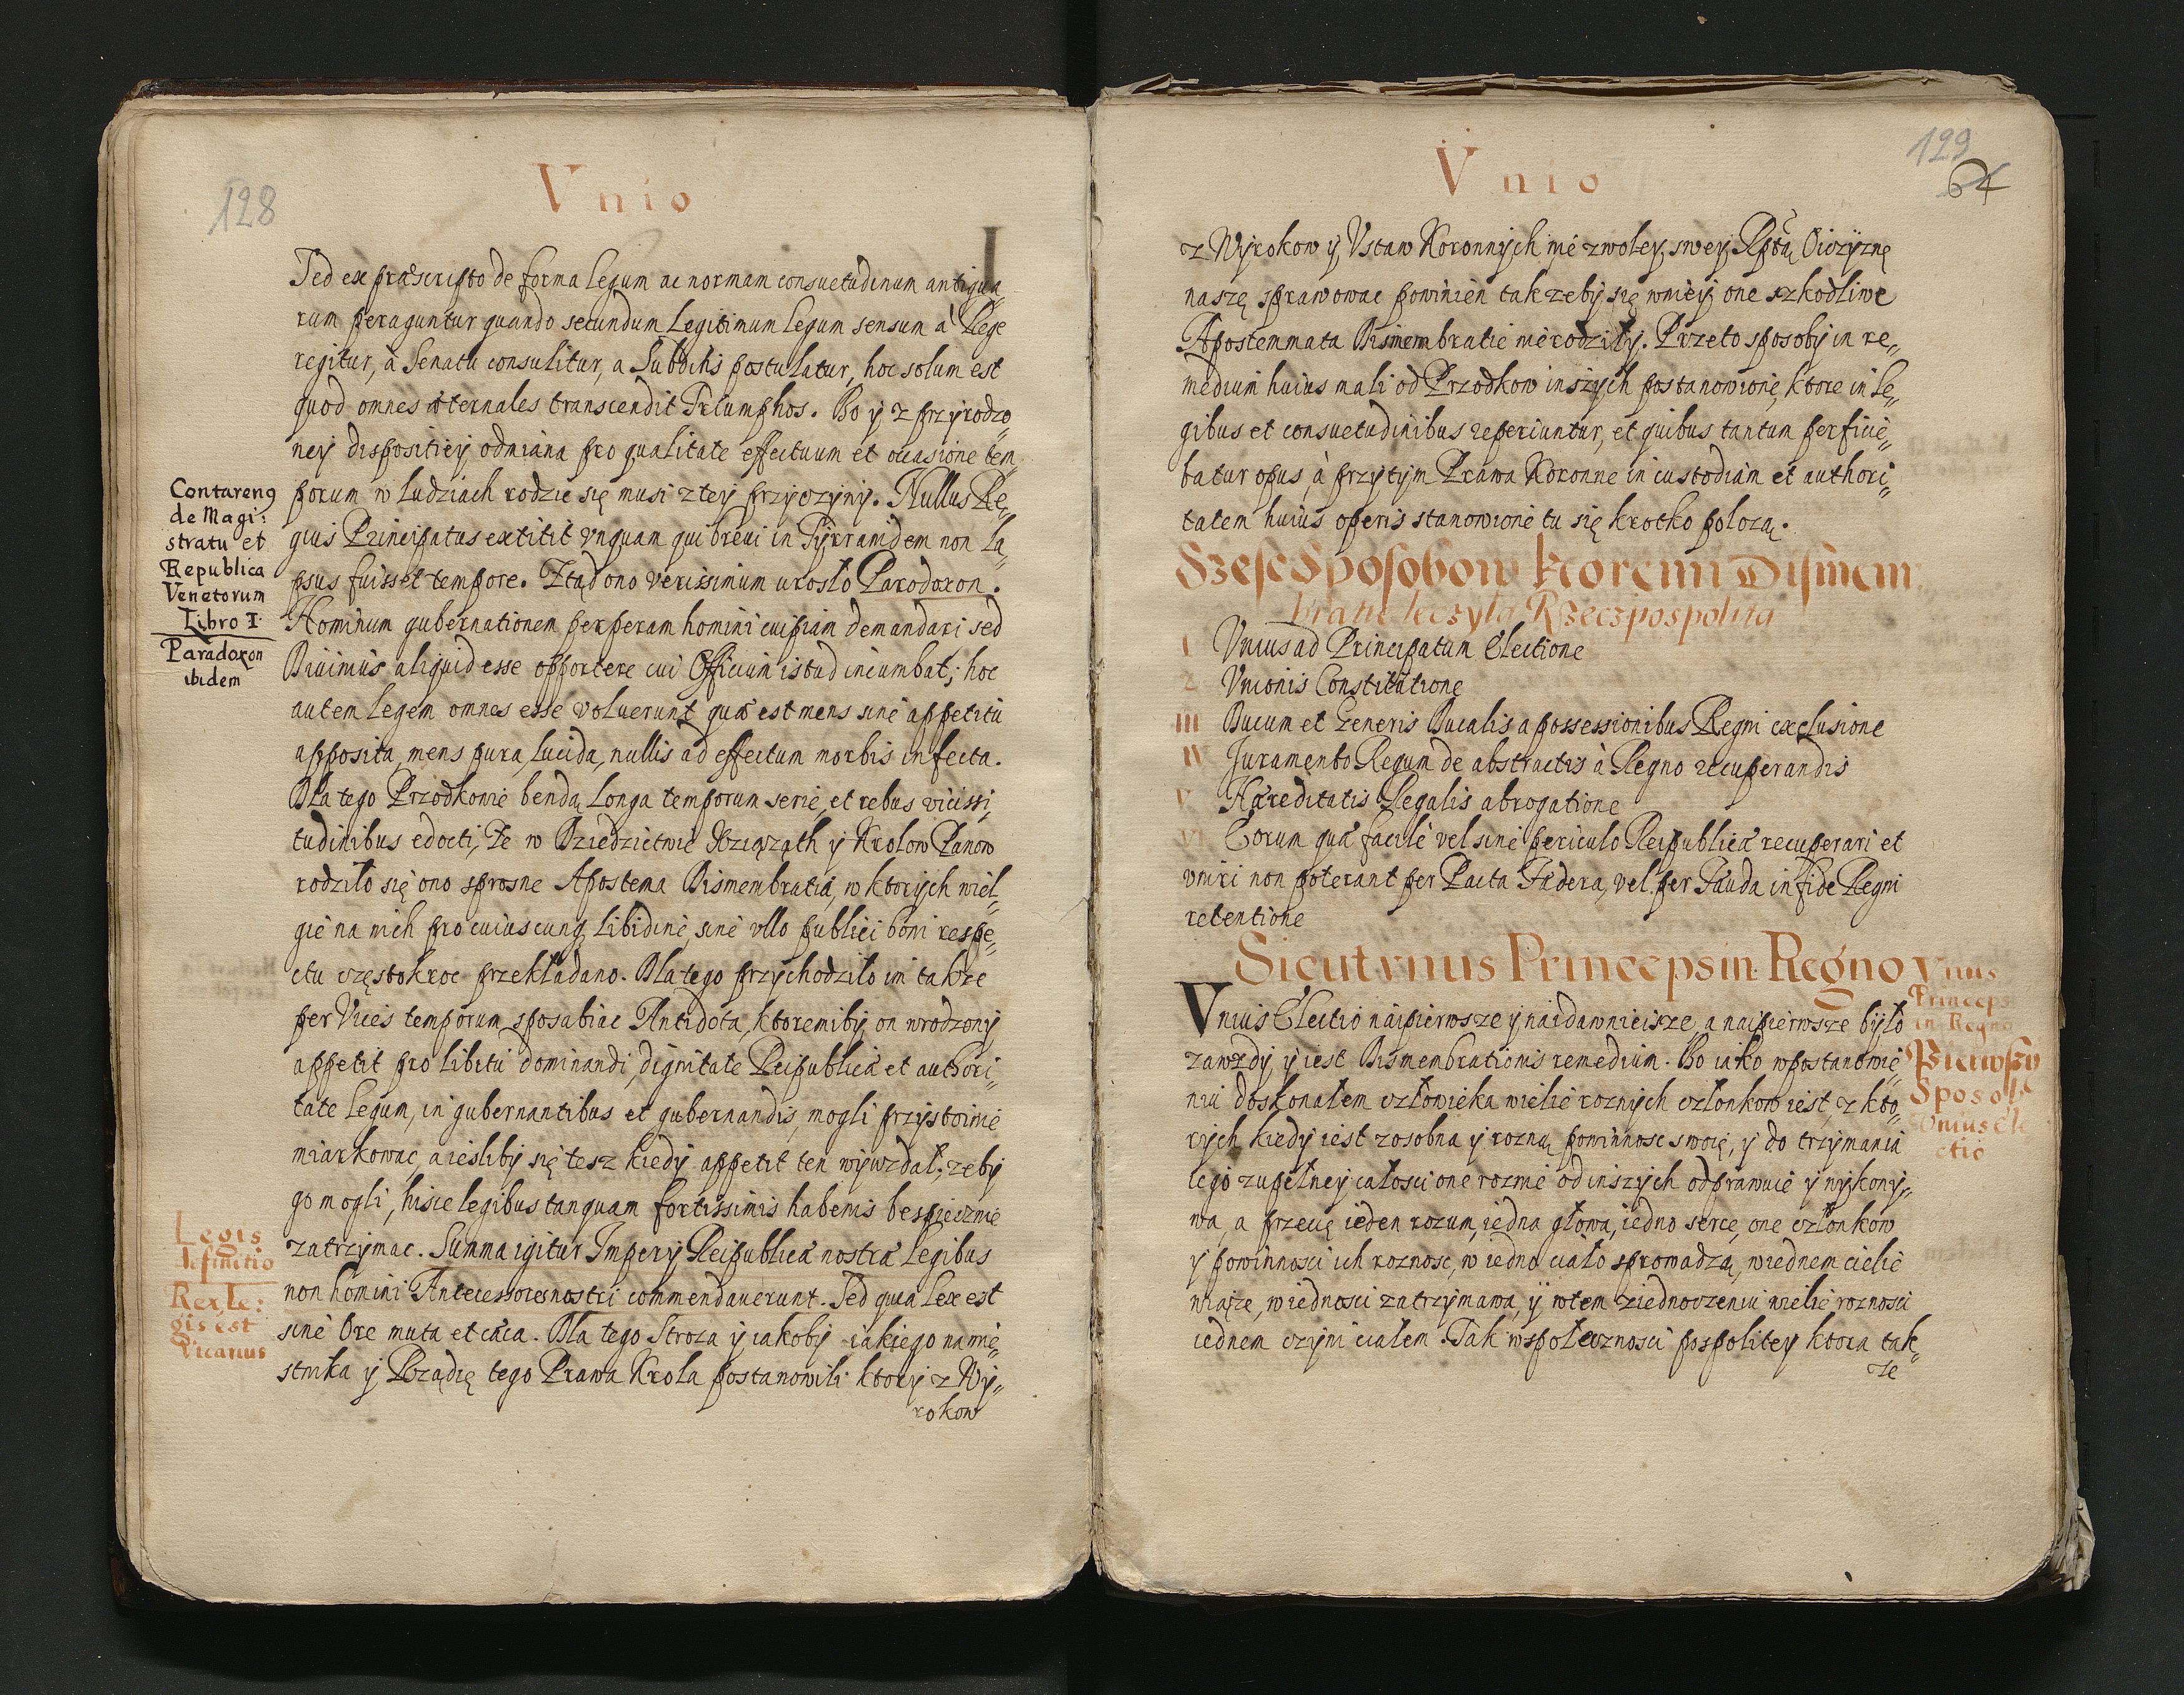 128
Vnio
Sed ex præscripto de forma legum ac normam consuetudinum antiqua„
rum peraguntur quando secundum Legitimum Legum sensum a Rege
regitur, à Senatu consulitur, a Subditis postulatur, hoc solum est
quod omnes æternales transcendit Triumphos. Bo y z przyrodzo„
ney dispositiey odmiana pro qualitate effectuum et occasione tem„
porum w ludziach rodzic się musi z tey przyczyny. Nullus Re„
gius Principatus extitit vnquam qui brevi in Tyrranidem non la„
psus fuisset tempore. Ztąd ono verissimum urosło Parodoxon.
Hominum gubernationem perperam homini cuipiam demandari sed
Diuimus aliquid esse opportere cui Officium istud incumbat; hoc
autem legem omnes esse voluerunt quæ est mens sine appetitu
apposita, mens pura, lucida, nullis ad effectum morbis infecta.
Dla tego Przodkowie bendą longa temporum serie, et rebus vicissi„
tudinibus edocti, Ze w Dziedzictwie Xziąząth y Krolow Panow
rodziło się ono sprosne Apostema Dismembratia, w ktorych wiel„
gie na nich pro cuiuscunq libidine, sine vllo publici boni respe„
ctu częstokroc przekładano. Dla tego przychodziło im takze
per Vices temporum sposabiac Antidota, ktoremiby on wrodzony
appetit pro libitu dominandi, dignitate Reipublicæ et authori„
tate Legum, in gubernantibus et gubernandis, mogli przystoinie
miarkowac, a iesliby się tesz kiedy appetit ten wywzdał, zeby
go mogli, hisce legibus tanquam fortissimis habenis bespiecznie
zatrzymac. Summa igitur Impery Reipublicæ nostræ Legibus
non homini Antecessores nostri commendauerunt. Sed quia Lex est
sine Ore muta et cæca. Dla tego Stroza y iakoby iakiego namie„
stnika y Rządzę tego Prawa Krola postanowili ktory z Wy„
rokow
Contareng
de Magi:
stratu et
Republica
Venetorum
Libro I.
Paradoxon
ibidem
Legis
definitio
Rex, Le:
gis est
Vicarius
129
64
Vnio
z Wyrokow y Vstaw Koronnych nie zwoley swey Rptą Oiczÿznę
naszę sprawowac powinien tak zeby się wniey one szkodliwe
Apostemmata Dismembratie nierodziły. Przeto sposoby in re„
medium huius mali od Przodkow inszych postanowione, ktore in Le„
gibus et consuetudinibus reperiuntur, et quibus tantum perficie„
batur opus, à przytym Prawa Koronne in custodiam et authori„
tatem huius operis stanowione tu się krotko połozą.
Szesc Sposobow ktoremi Dismem
bratie leczyla Rzeczpospolita
I Vnius ad Principatum Electione
2 Vnionis Constitutione
III Ducum et Generis Ducalis a possessionibus Regni exclusione
IV Juramento Regum de abstractis à Regno recuperandis
V Hæreditatis Regalis abrogatione
VI Eorum quæ facile vel sine periculo Reipublicæ recuperari et
vniri non poterant per Pacta Fædera, vel per Fæuda in fide Regni
retentione
Sicut vnus Princeps in Regno
Vnius Electio náipierwsze y naidawnieisze, a naipierwsze było
zawzdy, y iest Dismembrationis remedium. Bo iako w postanowie„
niu doskonałem człowieka wiele roznych członkow iest, z kto„
rych kiedy iest zosobna y rozną powinnosc swoię, y do trzymania
tego zupełney całosci one rozmie od inszych odprawuie y wykony„
wa, a przecię ieden rozum, iedna głowa, iedno serce, one członkow
y powinnosci ich roznosc, w iedno ciało sprowadzą, wiednem ciele
wiąze, wiednosci zatrzymawa, ÿ wtem ziednoczeniu wiele roznosci
iednem czyni ciałem. Tak wspolecznosci pospolitey ktora tak„
ze
Vnus
Princeps
in Regno
Pierwszy
Sposob
Vnius Ele
ctio